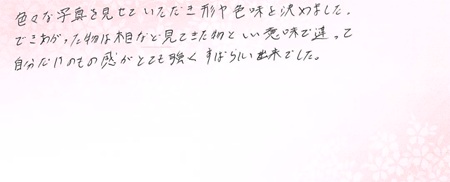 色々な写真を見せていただき形や色味を決めました。
できあがった物は相など見てきた物といい意味で違って
自分だけのもの感がとても強くすばらしい出来でした。